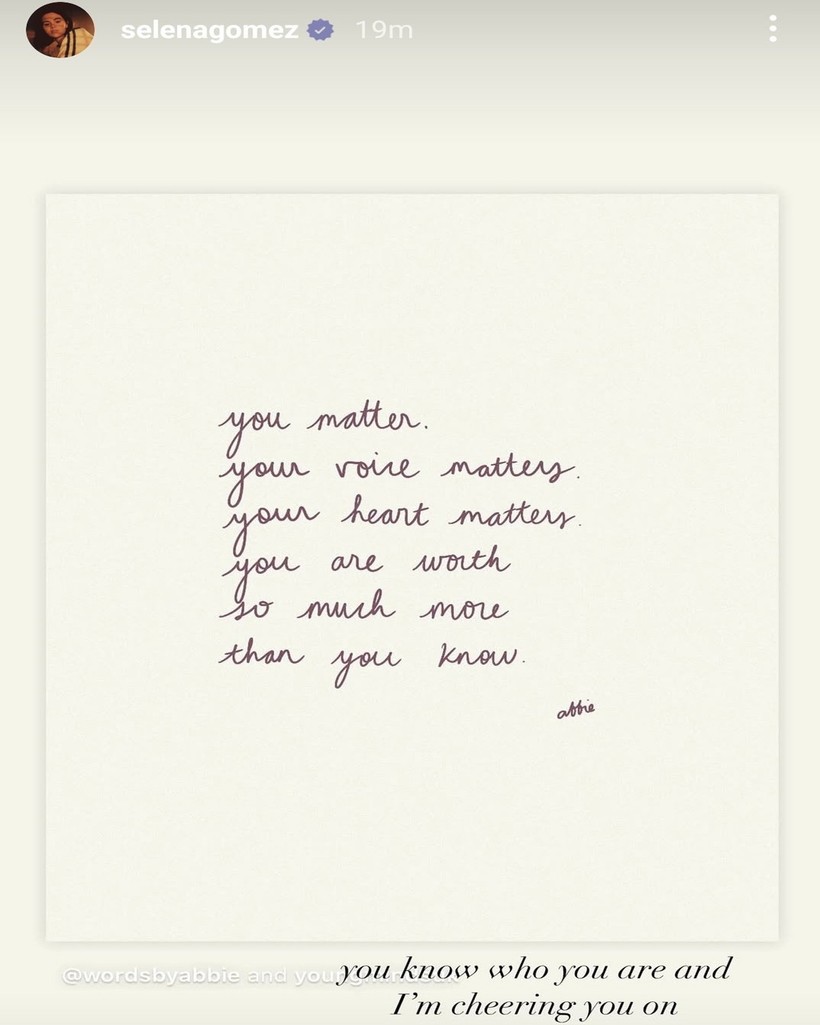 selenagomez 19m
you matter.
your voice matters.
your heart matters.
you are worth
so much more
than you know.
abbie
@wordsbyabbie and
you know who you are and
I'm cheering you on